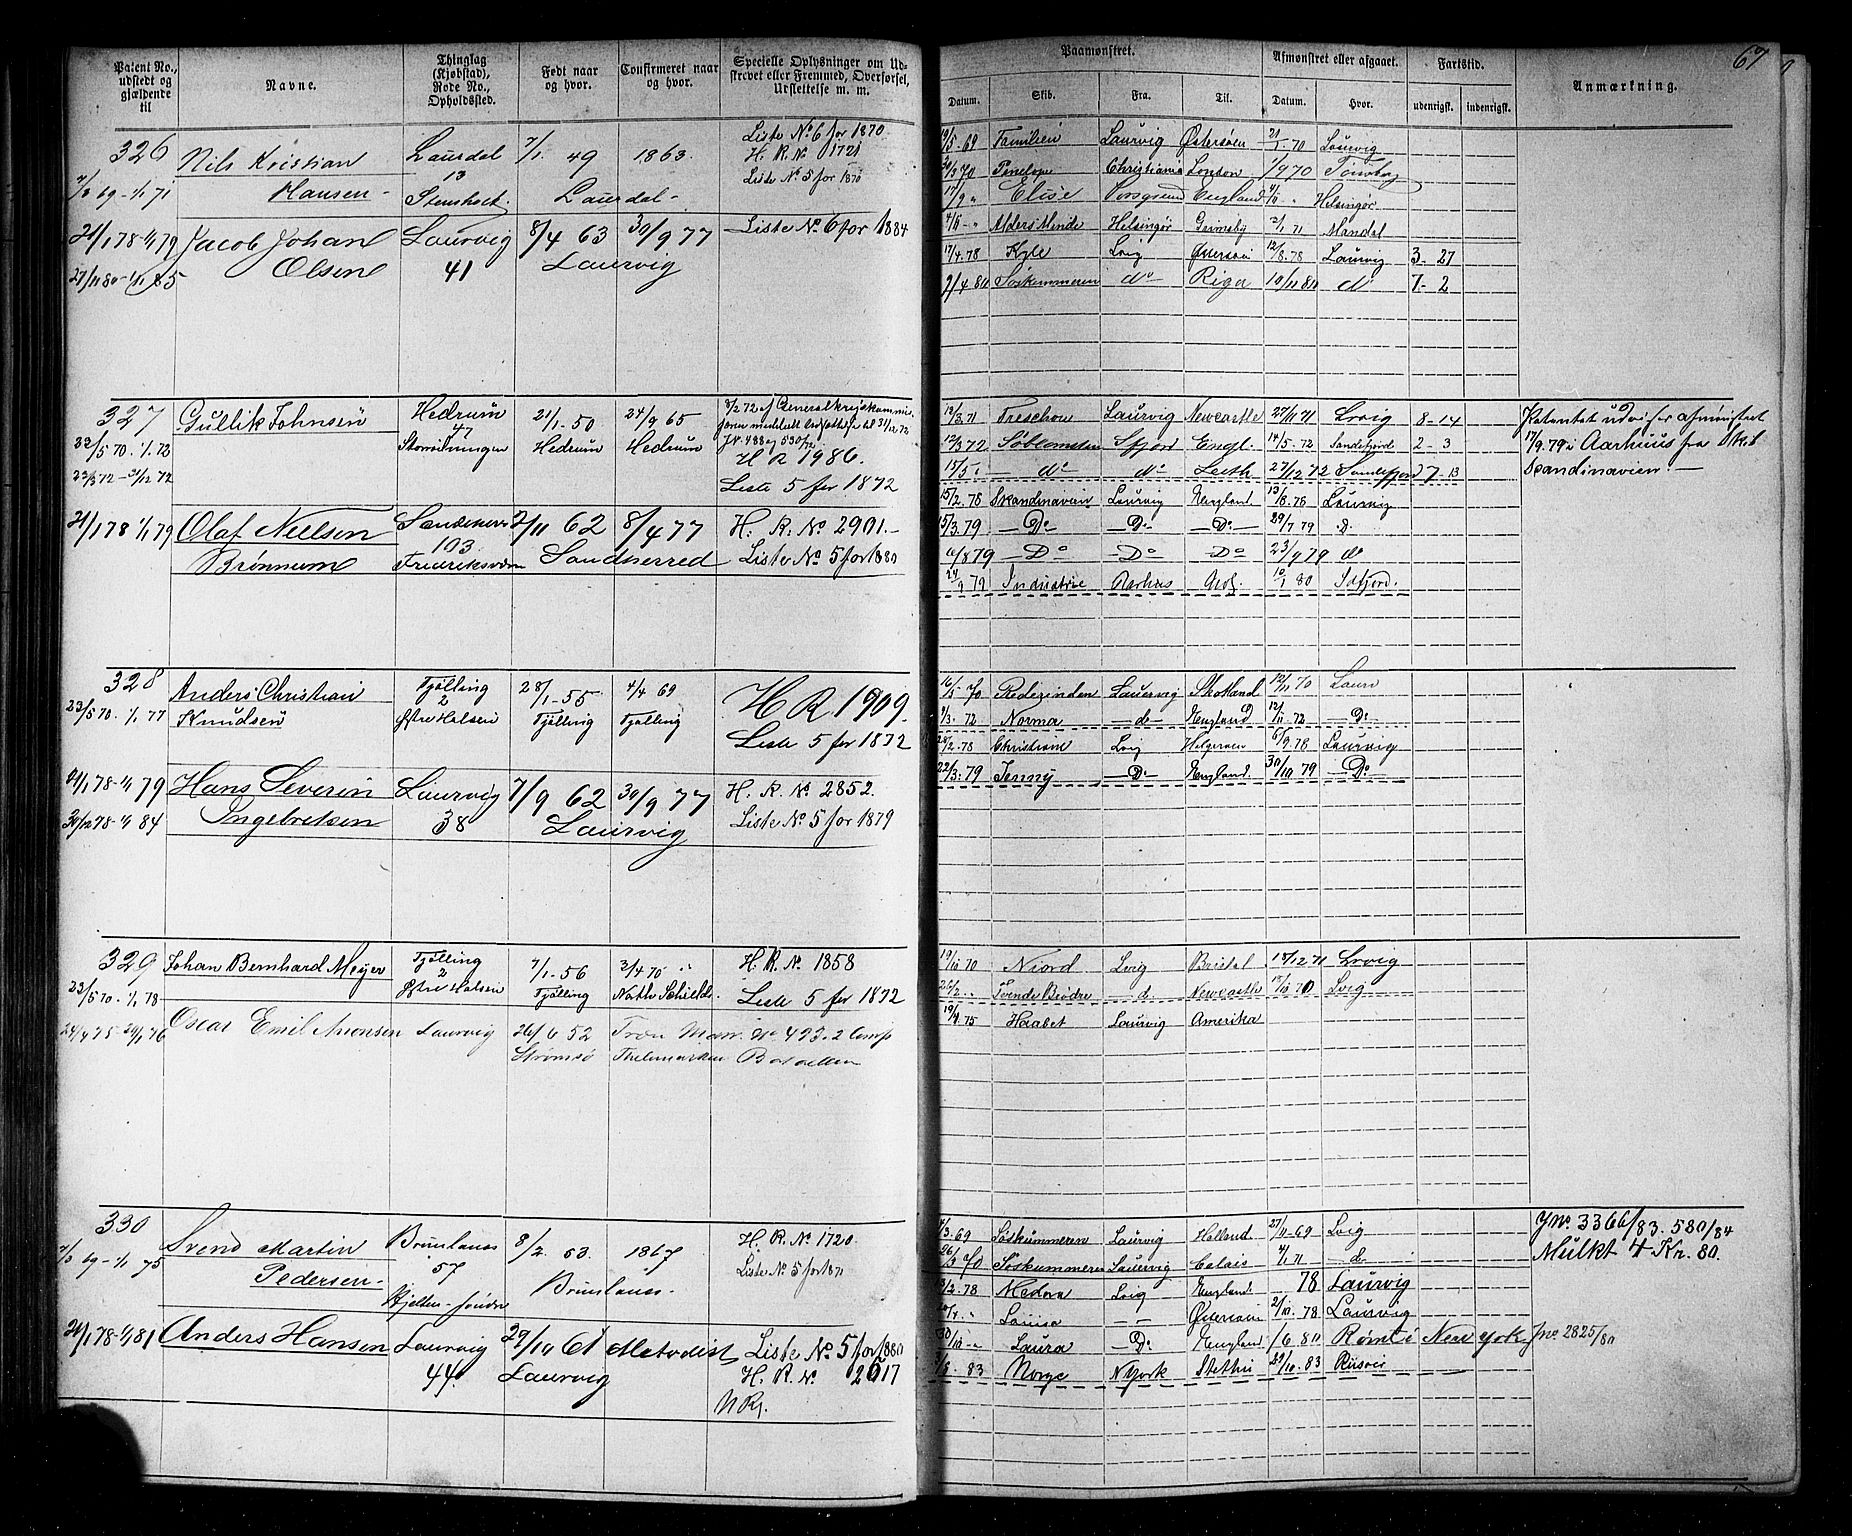 Patent No., udstedt og gjældende til
Navne.
Thinglag (Kjøbstad), Rode No., Opholdssted.
Født naar og hvor.
Confirmeret naar og hvor.
Specielle Oplysninger om Udskrevet eller Fremmed, Overførsel, Udslettelse m. m.
Paamønstret.
Afmønstret eller afgaaet.
Fartstid.
Anmærkning.
67
Datum. Skib. Fra. Til. Datum. Hvor. udenrigsk. indenrigsk.
326 Nils Kristian Hansen
Laurdal 13 Stensholt
7/1 49 1863
Laurdal
Liste No 6 for 1870
H. R. No 1721
Liste No 5 for 1870
7/3 69 - 1/1 71
Familien Laurvig Østersøen 70 Laurvig
Penelope Christiania London 1/9 70 Tønsberg
17/9 " Elise Porsgrund England " Helsingør
Alders Minde Helsingør Grimsby 2/1 71 Mandal
21/1 78 1/1 79 Jacob Johan Olsen
27/11 80 - 1/1 85
Laurvig 41
8/4 63 30/9 77
Laurvig
Liste No 6 for 1884
17/4.78 Kyle Lvig Østersøi 12/8.78 Laurvig 3-27
2/4 80 Søskummeren do Riga 10/11 80 do 7-2
327 Gullik Johnsen
Hedrum 47
21/1-50 Hedrum
24/9 65 Hedrum
H R 1986.
Liste 5 for 1872
23/5 70. 1/1.72
13/3.71 Treschou Laurvig Newcastle 27/11 71 Lrvig 8-14
12/3 72 Søblomsten Sfjord Engl. 14/5-72 Sandefjord 2-3
15/5 do do Leith 27/12 72 Sandefjord 7-13
Patentet
17/9.79 i Aarhuus fra Skib
Skandinavien.
21/1 78 1/1 79 Olaf Neelsen Brønnum
Sandeherr 103 Fredriksværn
2/11 62 8/4 77
Sandherred
H. R. No 2901.
Liste No 5 for 1880
15/2.78 Skandinavien Laurvig England. 13/8.78 Laurvig
15/3.79 Do Do Do 29/7 79 D.
8 79 Do Do Do 23/9 79 do
Industrie Aarhus 10/1 80 Sdfjord.
328 Anders Christian Knudsen
23/5 70. 1/1 77
Tjølling 2 Østre Halsen
28/1-55 Tjølling
4/4 69 Tjølling
H R 1909.
Liste 5 for 1872
16/5 70 Rederinden Laurvig Skotland 12/11 70 Laurv
3.72 Norma d England 12/11.72 Do
1/1 78 - 1/1 79 Hans Severin Ingebretsen
30/12 78 - 1/1 84
Laurvig 38
7/9 62 30/9 77
Laurvig
H. R. No 2852.
Liste No 5 for 1879
2.78 Christiane Lvig Helgeroen 6/9.78 Laurvig
22/3.79 Jenny Do England. 30/10 79 Do
329 Johan Bernhard Meyer
23/5 70. 1/1.78
Tjølling 2 Østre Halsen
7/1-56 Tjølling
3/4 70
H. R. No 1858
Liste 5 for 1872
19/10 70 Niord Lvig Bristol 12 71 Lrvig
26/2 Tvende Brødre d. Newcastle Lvig
24/4 75 - 29/1 76 Oscar Emil Aronsen Laurvig
26/6 52 Strømsø
Træn Man. No 493. 2 Comp
Thelemarken Bataillon
19/4.75 Haabet Laurvig Amerika
330 Svend Martin Pedersen
7/3 69 - 1/1 75
Brunlanes 57
8/2 53. 1867
Brunlanes
H. R. No 1720
Liste No 5 for 1871
3.69 Søskummeren Laurvig Holland 27/11-69 Lvig
26/3 70 Søskummeren Laurvig Calais 4/1 71 d
Jno. 3366/83. 580/84
Mulkt 4 Kr. 80.
21/1 78 - 1/1 81 Anders Hansen
Laurvig 44.
29/10 61 Methodist
Laurvig
Liste No 5 for 1880
H. R. No 2517
N Rg.
2.78 Medora Lvig England 78 Laurvig
Louise Østersøen 2/10.78 Laurvig
30/10 Laura Do England 6.80 Rømt i New York Jno 2825/80
83 Norge N York Stettin 10.83 Risoer